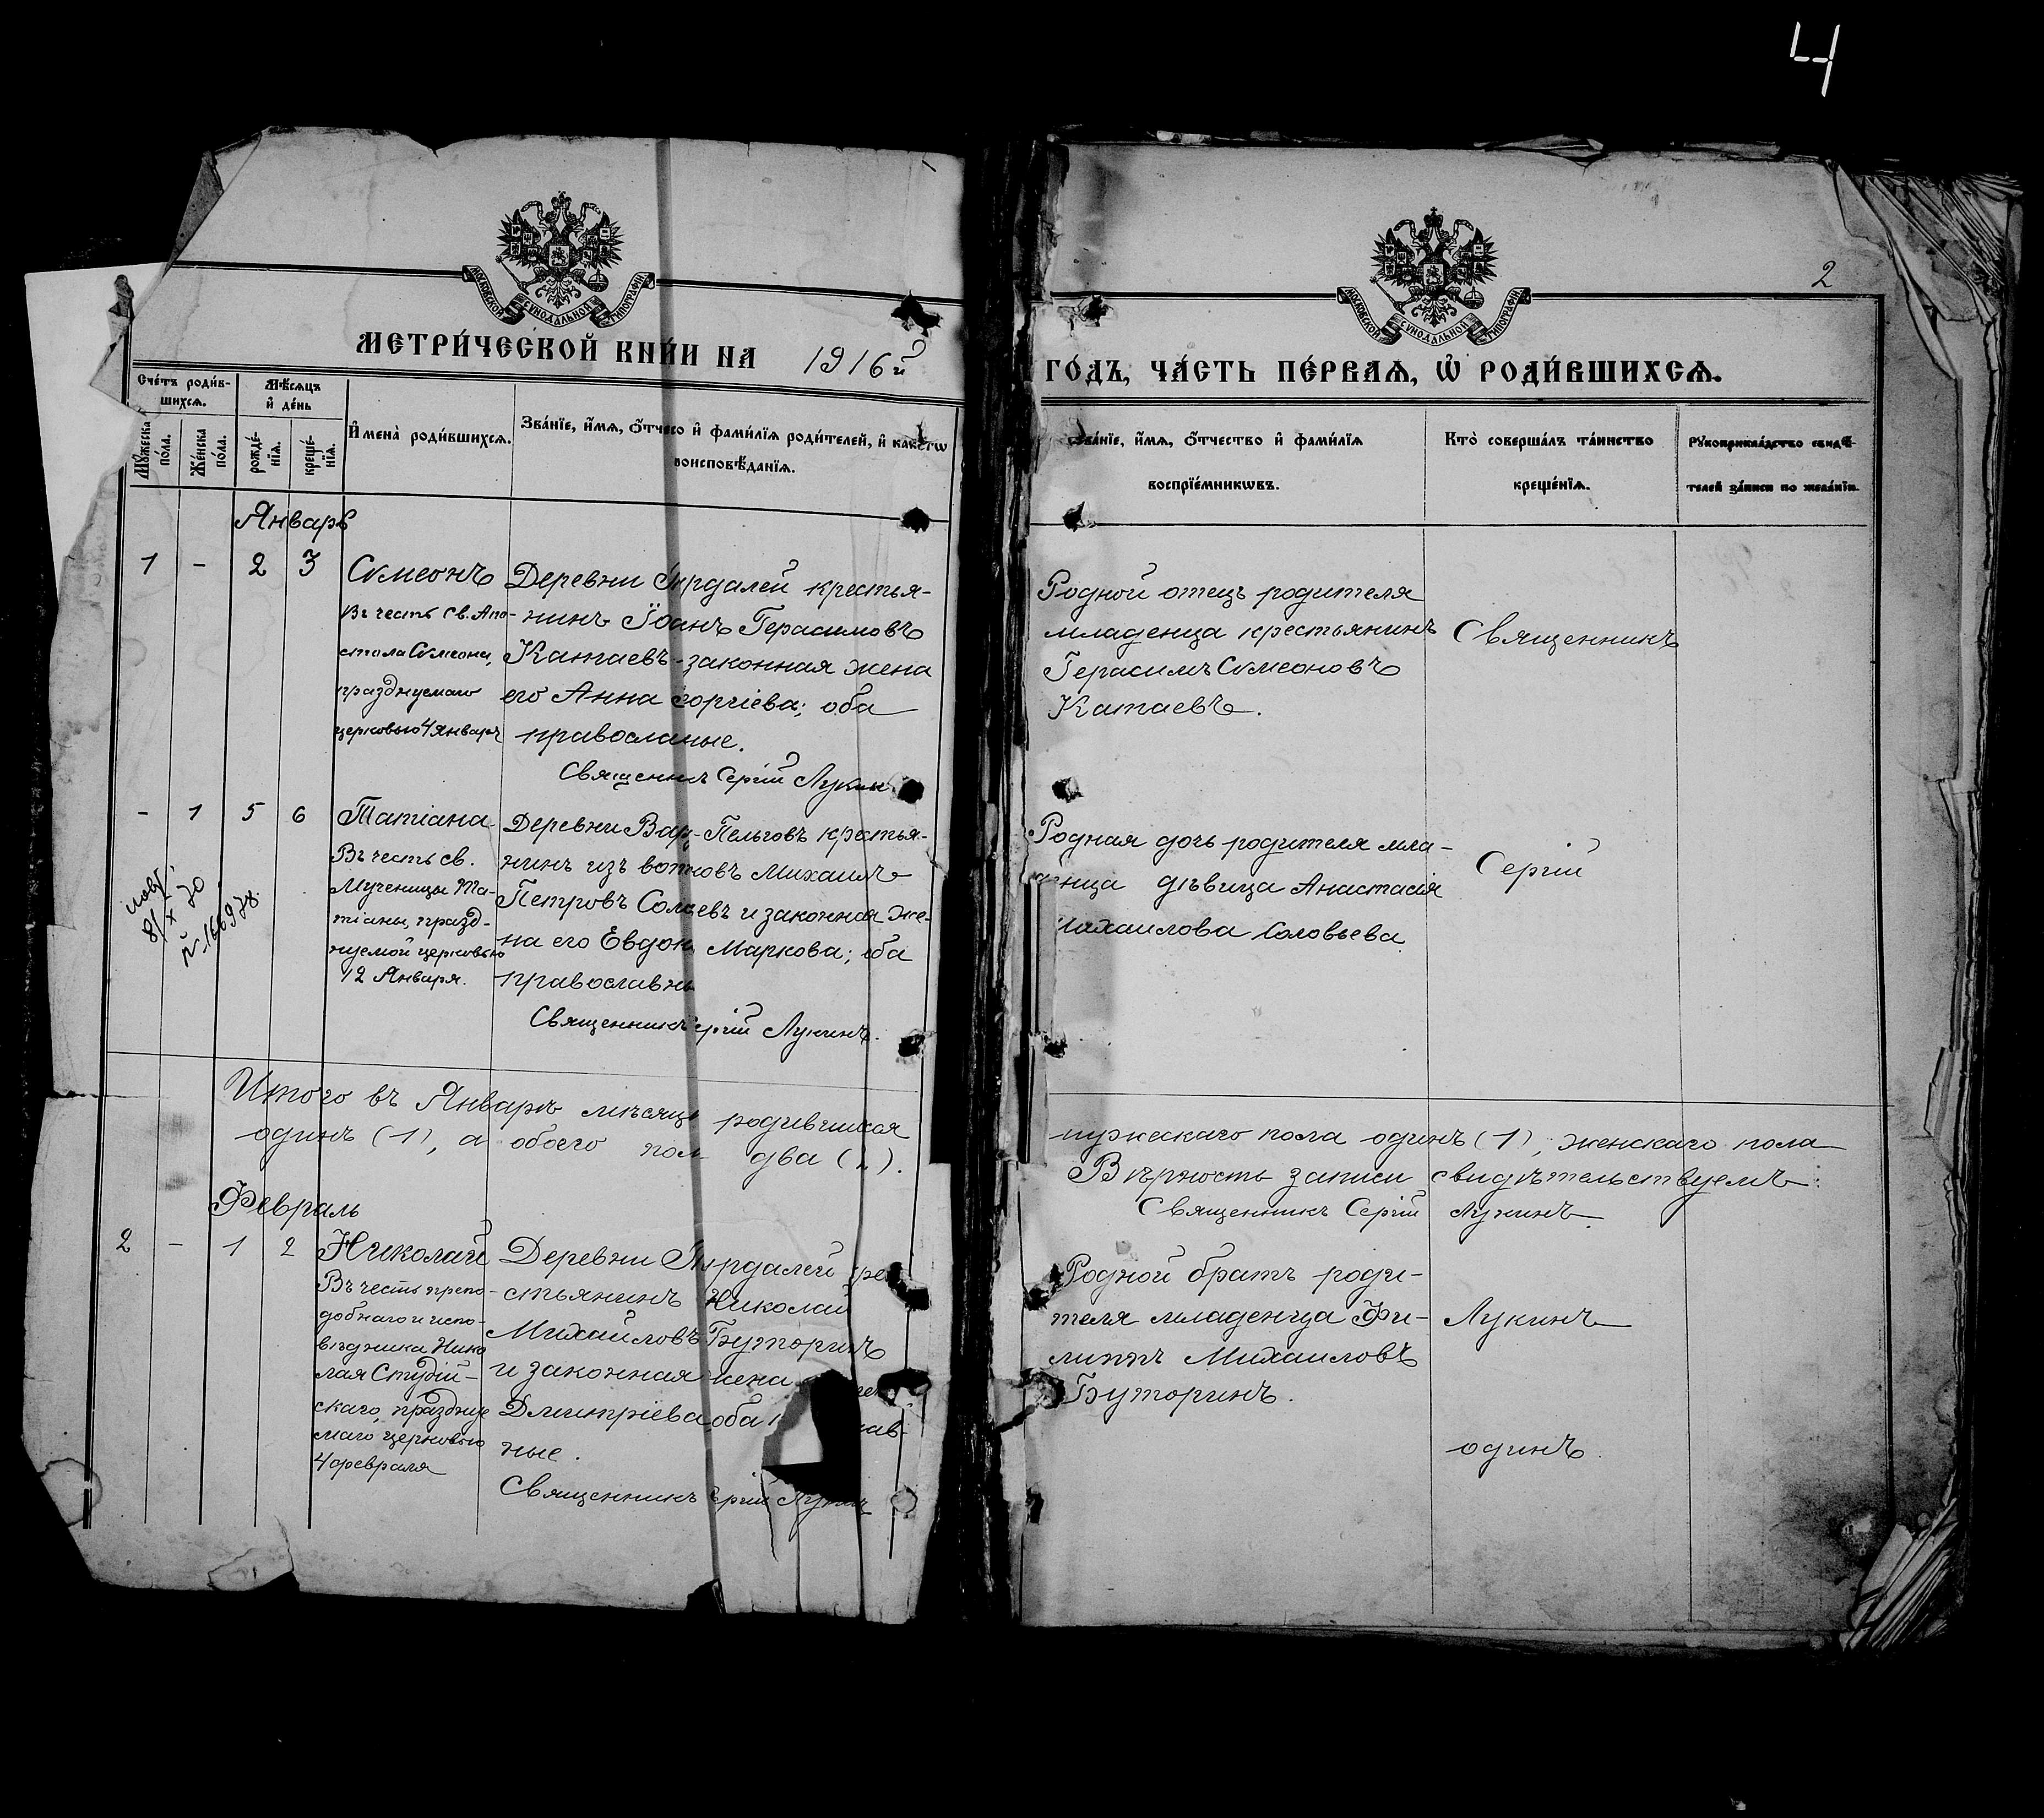 4
2
МОСКОВСКОЙ СѴНОДАЛЬНОЙ ТИПОГРАФІИ
МОСКОВСКОЙ СѴНОДАЛЬНОЙ ТИПОГРАФІИ
МЕТРИ́ЧЕСКОЙ КНИ́ГИ НА 1916й
ГО́ДЪ, ЧА́СТЬ ПЕ́РВАѦ, Ѽ РОДИ́ВШИХСѦ.
Сче́тъ роди́в-
шихсѧ.
Мѣ́сяцъ
и҆ де́нь
Мꙋ́жеска по́ла.
Же́нска по́ла.
рожде́-нїѧ.
креще́-нїѧ.
И҆мена̀ роди́вшихсѧ.
Зва́нїе, и҆́мѧ, ѻ҆́тчество и҆ фами́лїѧ роди́телей, и҆ како́гѡ
вѣроисповѣ́данїѧ.
Зва́нїе, и҆́мѧ, ѻ҆́тчество и҆ фами́лїѧ
воспрїе́мникѡвъ.
Кто̀ соверша́лъ та́инство
креще́нїѧ.
Рꙋкоприкла́дство свидѣ́-
телей за́писи по жела́нїю.
Январь
1 - 2 3
Сѵмеонъ
Въ честь св. Апо-
стола Сѵмеона,
празднуемаго
церковью 4 января
Деревни Пурдалей крестья-
нинъ Іоанъ Герасимовъ
Катаевъ - законная жена
его Анна Георгіева; оба
православные.
Священникъ Сергій Лукинъ
Родной отецъ родителя
младенца крестьянинъ
Герасимъ Сѵмеоновъ
Катаевъ.
Священникъ
- 1 5 6
8/X 70
Татіана
Въ честь св.
Мученицы Та-
тіаны, празд-
нуемой церковью
12 Января.
Деревни Пельговъ крестья-
нинъ изъ вотяковъ Михаилъ
Петровъ Соловьевъ и законная же-
на его Маркова; оба
православны
Священникъ Сергій Лукинъ.
Родная дочь родителя мла-
денца дѣвица Анастасія
Михаилова Соловьева
Сергій
Итого въ Январѣ мѣсяцѣ родившихся
мужескаго пола одинъ (1), женскаго пола
одинъ (1), а обоего пола два (2).
Вѣрность записи свидѣтельствуемъ:
Священникъ Сергій Лукинъ.
Февраль
2 - 1 2
Николай
Въ честь препо-
добнаго и испо-
вѣдника Нико
лая Студій-
скаго, праздну
емаго церковью
4 февраля
Деревни Пурдалей кре
стьянинъ Николай
Михаиловъ Буторинъ
и законная жена
Дмитріева, оба православ-
ные.
Священникъ Сергій Лукинъ
Родной братъ роди-
теля младенца Фи-
липпъ Михаиловъ
Буторинъ.
Лукинъ
одинъ.